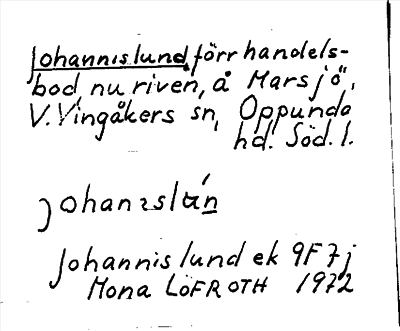 Johannislund, förr handels-
bod, nu riven, å Marsjö,
V. Vingåkers sn, Oppunda
hd. Söd. l.
Johannislund ek 9F7j
Mona LÖFROTH 1972